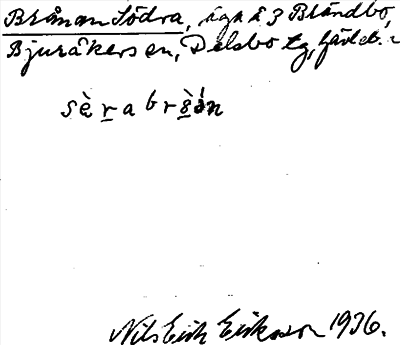 Brånan Södra, äga å 3 Brändbo,
Bjuråkers sn, Delsbo tg, Gävleb. l
sè̱ṟa brè̱̀n
Nils Erik Eriksson 1936.